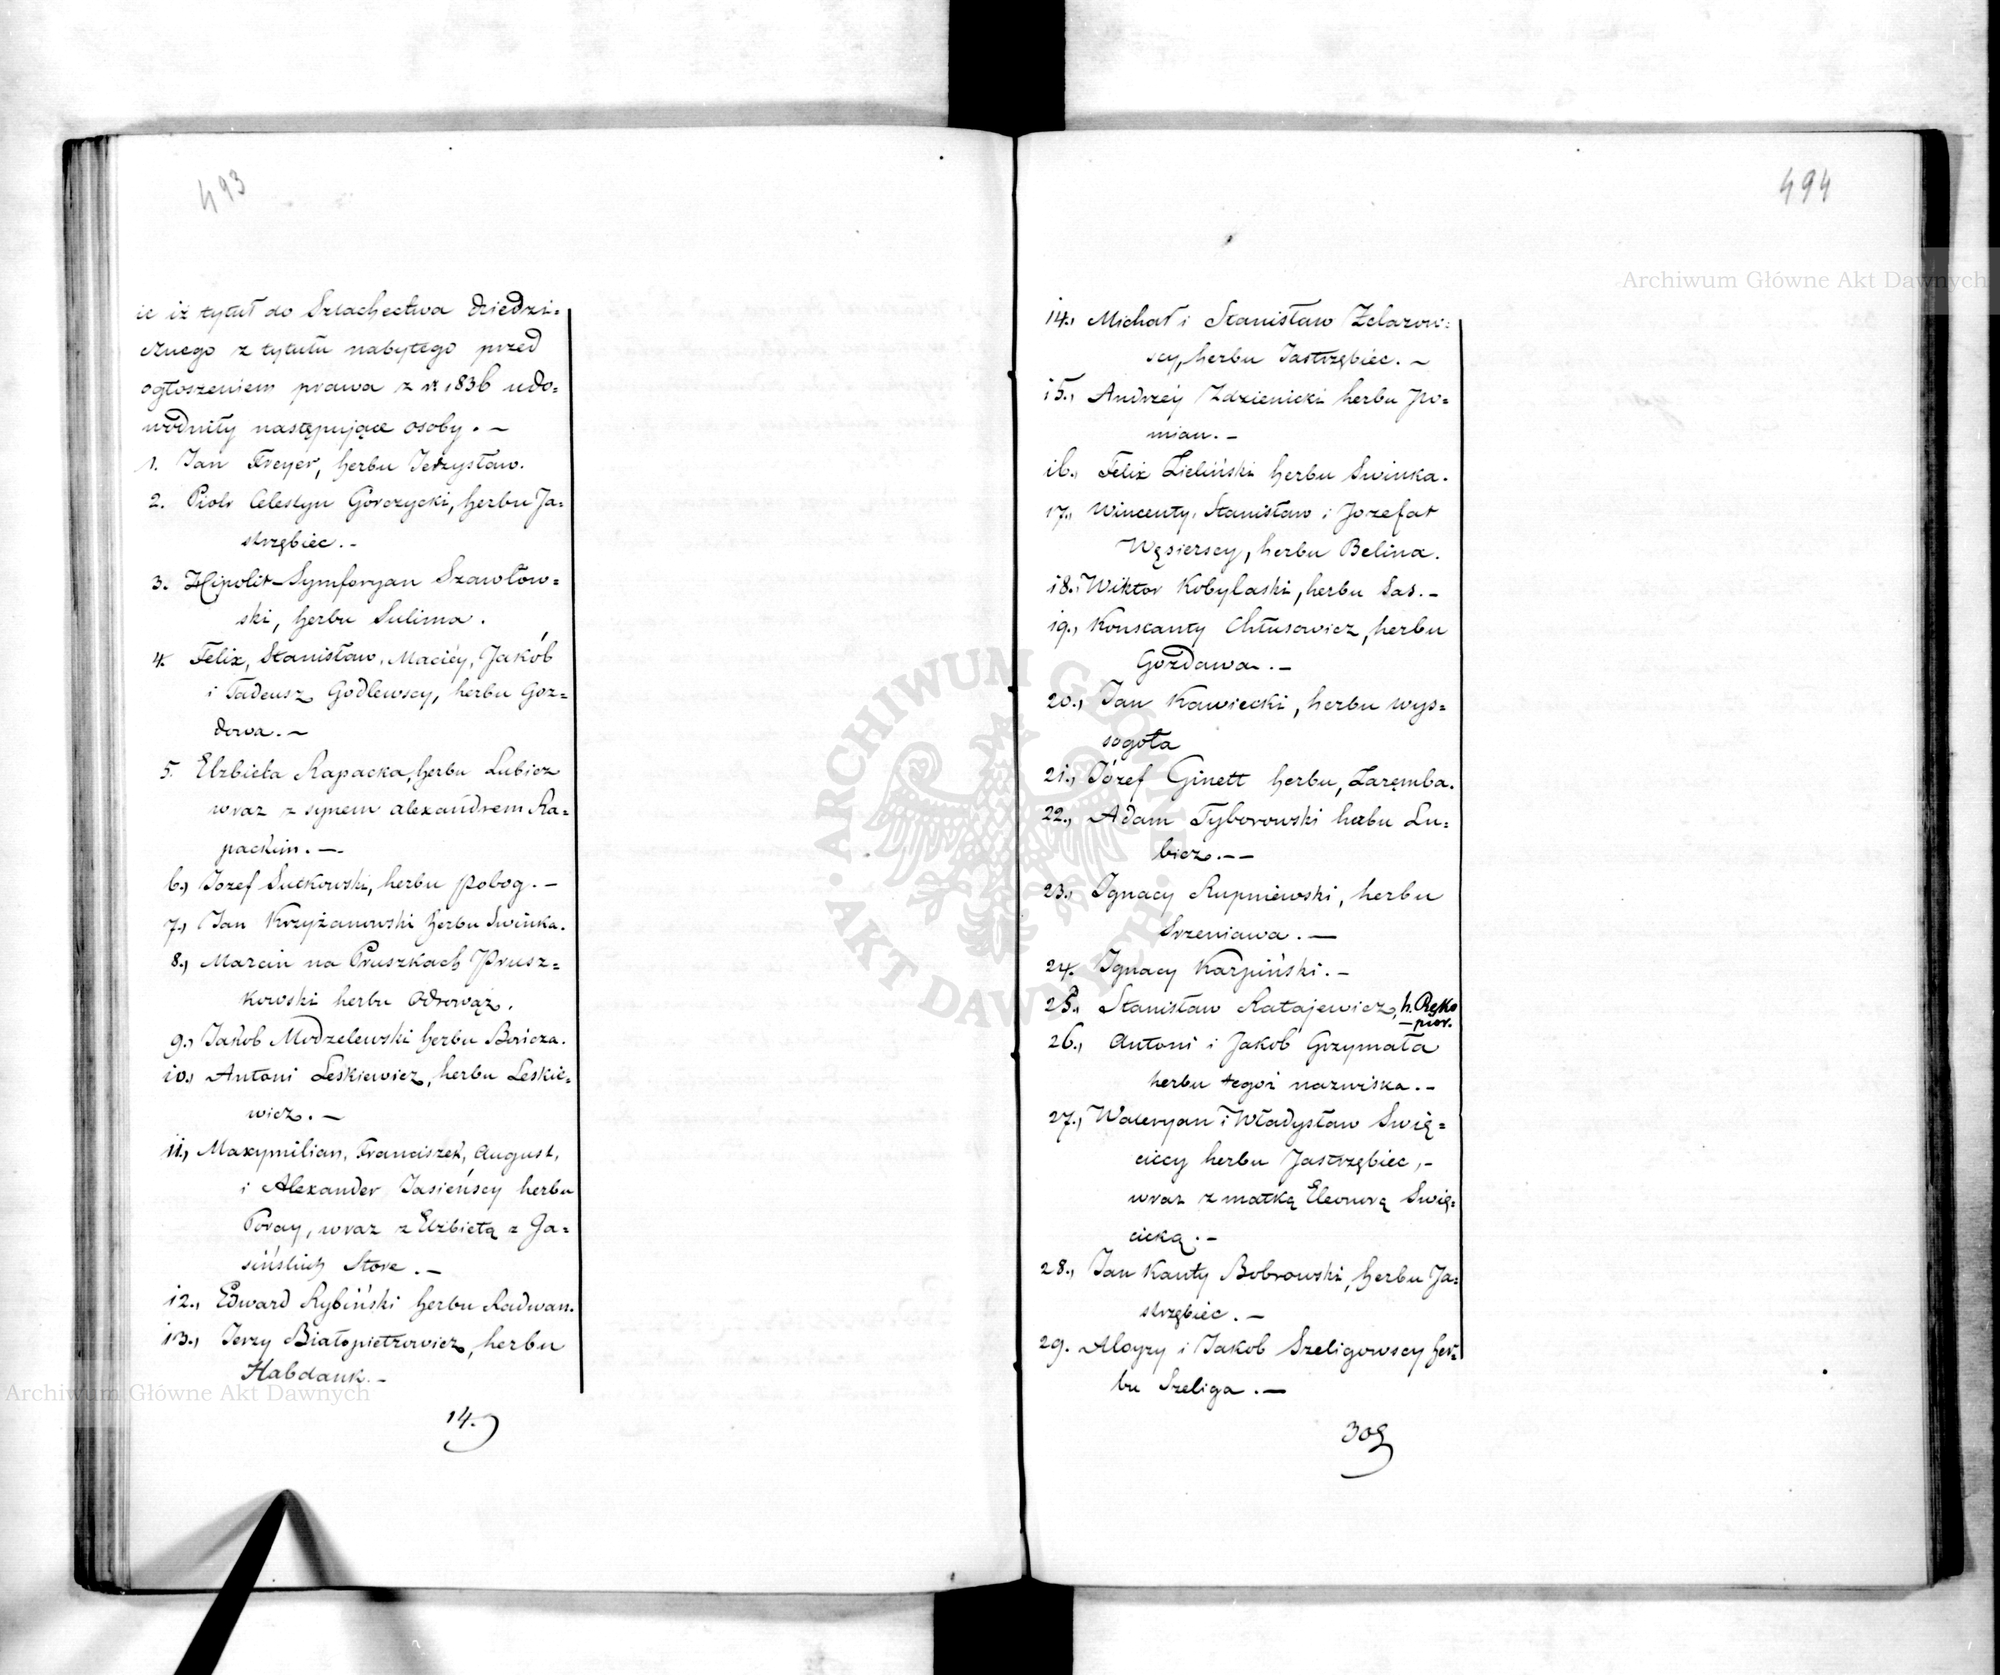 493
ie iż tytuł do Szlachectwa dziedzi=
cznego z tytułu nabytego przed
ogłoszeniem prawa z r. 1836 udo=
wodniły następujące osoby. —
1. Jan Freyer, herbu Jerzysław.
2. Piotr Celestyn Gorczycki, herbu Ja=
strzębiec. —
3. Hipolit-Symforyan Szawłow=
ski, herbu Sulima.
4. Felix, Stanisław, Maciéy, Jakób
i Tadeusz Godlewscy, herbu Goz=
dowa. —
5. Elżbieta Rapacka, herbu Lubicz
wraz z synem Alexandrem Ra=
packim. —
6., Jozef Sutkowski, herbu Pobog. —
7., Jan Krzyżanowski herbu Swinka.
8., Marcin na Pruszkach Prusz=
kowski herbu Odrowąż.
9., Jakob Modzelewski herbu Bończa.
10., Antoni Leskiewicz, herbu Leskie=
wicz. —
11., Maxymilian, Franciszek, August,
i Alexander Jasieńscy herbu
Poray, wraz z Elżbietą z Ja=
sińskich Store. —
12., Edward Rybiński herbu Radwan.
13., Jerzy Białopietrowicz, herbu
Habdank. —
14.
494
14., Michał i Stanisław Zelazow=
scy, herbu Jastrzębiec. —
15., Andrzéy Zdzienicki herbu Po=
mian. —
16., Felix Zieliński herbu Swinka.
17., Wincenty, Stanisław i Jozefat
Węsierscy, herbu Belina.
18., Wiktor Kobylaski, herbu Sas. —
19., Konstanty Chłusowicz, herbu
Gozdawa. —
20., Jan Kawiecki, herbu Wys=
sogota
21., Józef Ginett herbu, Zaręmba.
22., Adam Tyborowski herbu Lu=
bicz. — —
23., Ignacy Rupniewski, herbu
Srzeniawa. —
24. Ignacy Karpiński. —
25., Stanisław Ratajewicz, h. Ręko
—pior.
26., Antoni i Jakob Grzymała
herbu tegoż nazwiska. —
27., Waleryan i Władysław Swię=
ciccy herbu Jastrzębiec, —
wraz z matką Eleonorą Swię=
cicką. —
28., Jan Kanty Bobrowski, herbu Ja=
strzębiec. —
29. Aloyzy i Jakob Szeligowscy her=
bu Szeliga. —
30
Archiwum Główne Akt Dawnych
Archiwum Główne Akt Dawnych
ARCHIWUM GŁÓWNE
AKT DAWNYCH